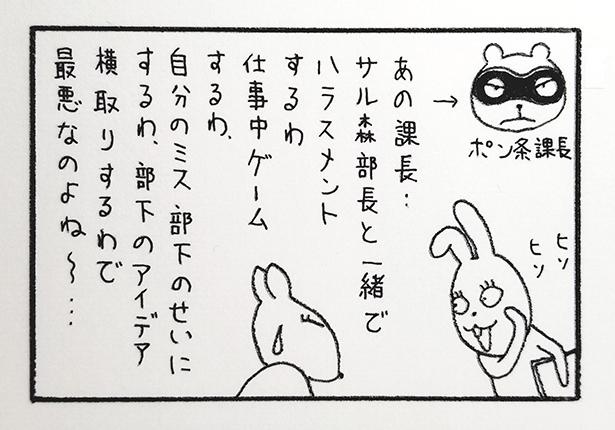 あの課長…
サル森部長と一緒で
ハラスメント
するわ
仕事中ゲーム
するわ、
自分のミス部下のせいに
するわ、部下のアイデア
横取りするわで
最悪なのよね〜…
ポン条課長
ヒソ
ヒソ